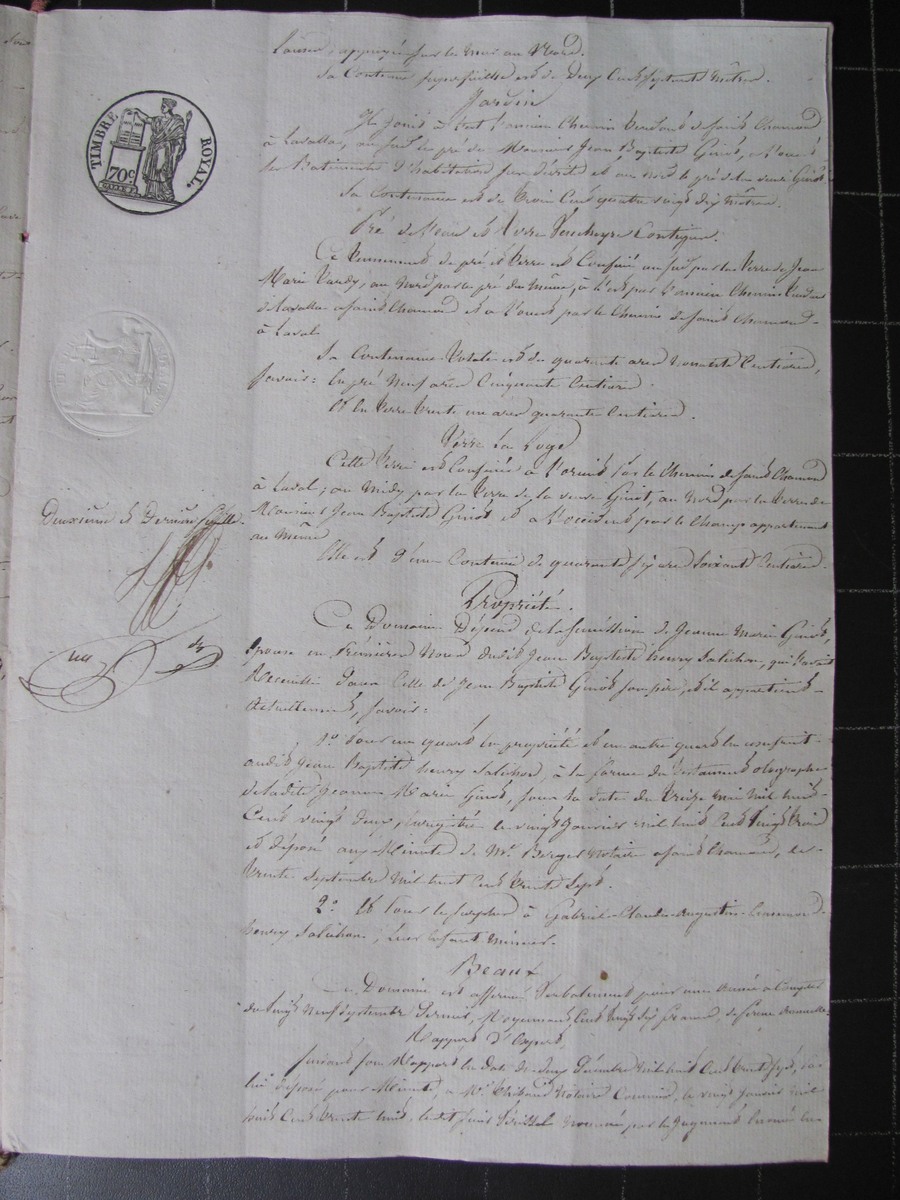 TIMBRE ROYAL
70c.
appuyée sur le mur au Nord.
Sa Contenue superficielle est de Deux Cent Septante Mètres.
Jardin
Il joint à l'est l'ancien Chemin tendant de Saint Chamond
à Lavalla, au sud le pré de Monsieur Jean Baptiste Ginot, à l'ouest
les Batiments d'habitation sur dérité et au nord le pré du susdit Ginot
Sa Contenance est de Trois Cent quatre vingt dix Mètres.
Pré et Terre Contigus.
Ce Tennement de pré et Terre est Confiné au sud par la Terre de Jean
Marie Vardy, au Nord par le pré du même, à l'est par l'ancien Chemin tendant
de Lavalla à Saint Chamond et à l'ouest par le Chemin de Saint Chamond
à Laval.
Sa Contenance totale est de quarante ares Nonante Centiares,
Savoir: le pré Neuf ares Cinquante Centiares.
Et la Terre trente un ares quarante Centiares.
Terre La Loge
Cette Terre est Confinée à l'orient par le Chemin de Saint Chamond
à Laval; au Midy par la Terre de la veuve Ginot, au Nord par la Terre de
Monsieur Jean Baptiste Ginot et à l'occident par le Champ appartenant
au Même
Elle est d'une Contenue de quarante six ares Soixante Centiares.
Deuxième et Dernière feuille.
Propriété.
Ce Domaine Dépend de la succession de Jeanne Marie Ginot,
Epouse en Premières Noces dudit Jean Baptiste henry Salichon, qui l'avait
Recueilli dans Celle de Jean Baptiste Ginot son père, et il appartient
Actuellement, savoir:
1o. Pour un quart en propriété et un autre quart en usufruit
audit Jean Baptiste henry Salichon, à la forme du Testament olographe
de ladite Jeanne Marie Ginot, sous la date du Treize mai Mil huit
Cent vingt Deux, enregistré le vingt Janvier mil huit Cent Vingt Trois
et déposé aux Minutes de Me. Berger Notaire à Saint Chamond, le
Trente Septembre Mil huit Cent Trente Sept.
2o. Et Pour le surplus à Gabriel-Claude-Augustin
henry Salichon, leur Enfant Mineur.
Beaux
Ce Domaine est affermé Verbalement pour une Année à Compter
du Vingt Neuf Septembre Dernier, Moyennant Cent Vingt Six francs, de ferme Annuelle.
Rapport d'Expert.
Suivant son Rapport en Date du Deux Décembre Mil huit Cent Trente Sept, par
lui déposé pour Minute, à Me. Thibaud Notaire Commis, le vingt Janvier Mil
huit Cent Trente huit, ledit Nommé par le Jugement